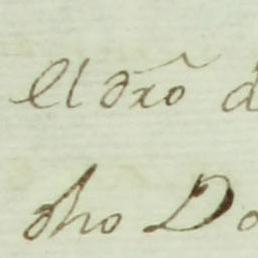 El dr̃o d
dho Do